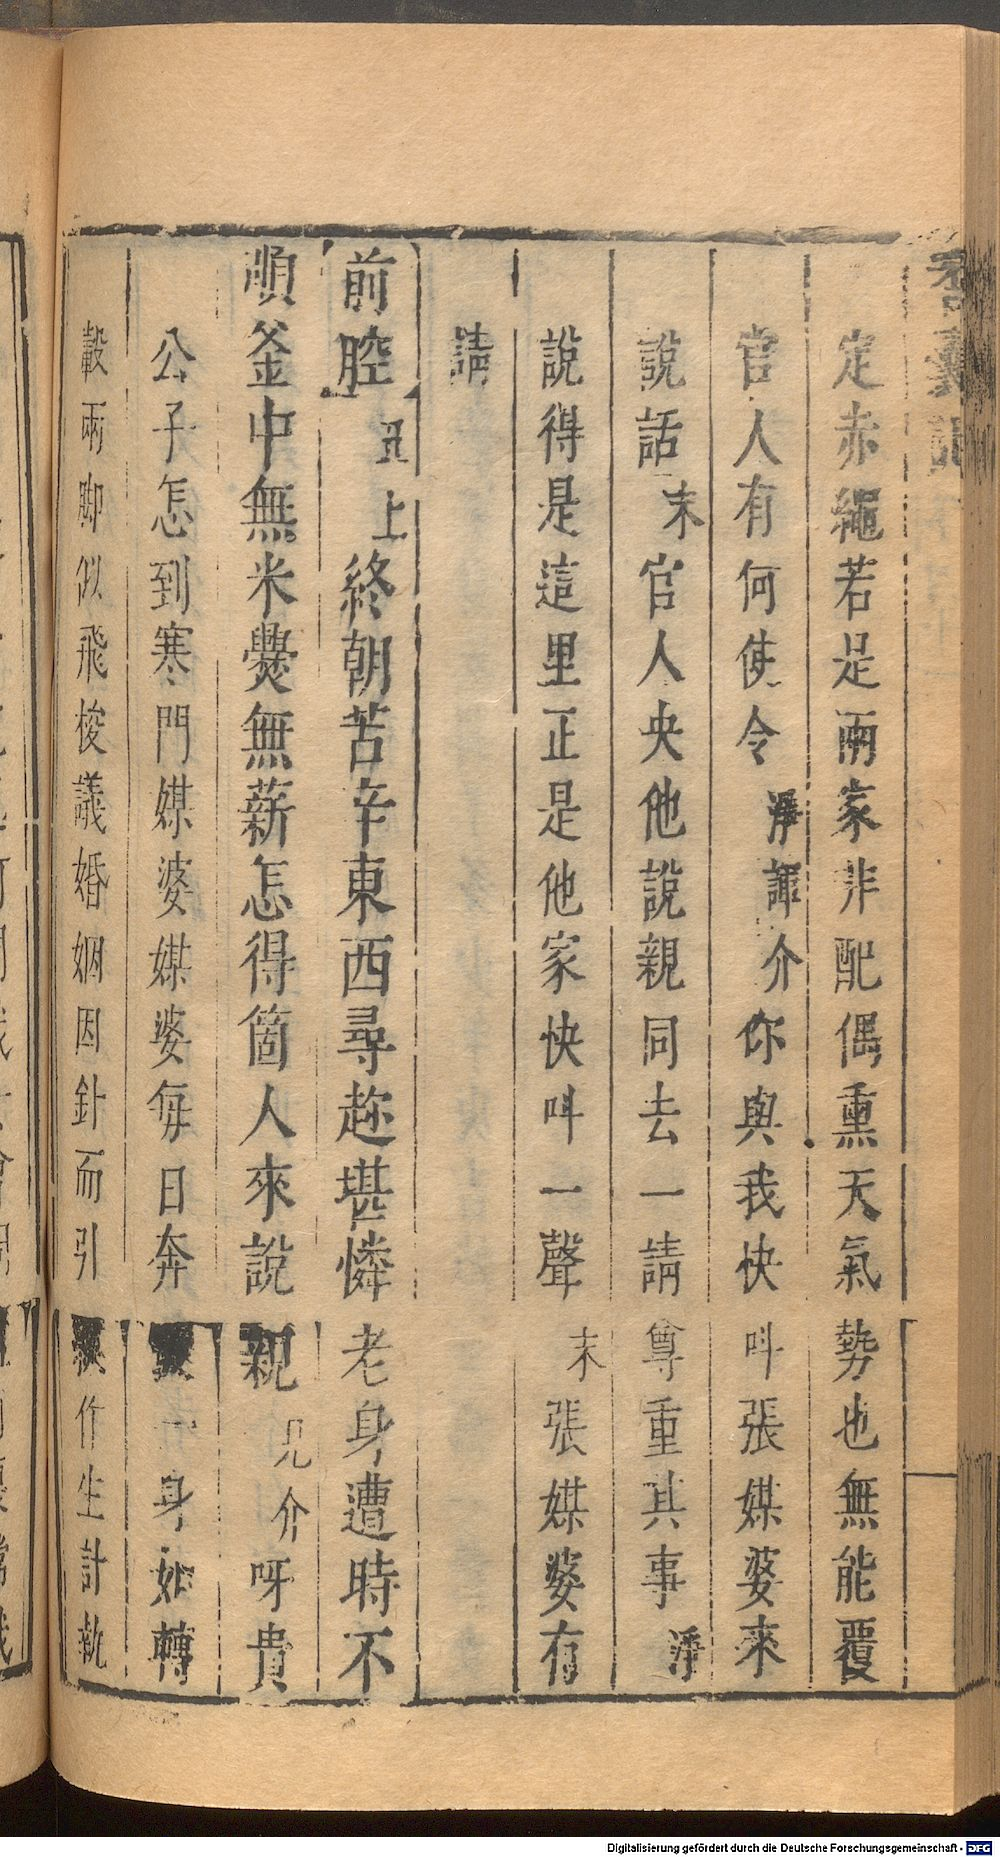 定赤繩若是兩家非配偶熏天氣勢也無能覆
官人有何使令淨諢介你與我快叫張媒婆來
說話末官人央他說親同去一請尊重其事淨
說得是這里正是他家快叫一聲末張媒婆有
請
前腔丑上終朝苦辛東西尋趂堪憐老身遭時不
順釜中無米爨無薪怎得箇人來說親見介呀貴
公子怎到寒門媒婆媒婆每日奔 一身如轉
轂兩脚似飛梭議婚姻因針而引線作生計執
香囊記
Digitalisierung gefördert durch die Deutsche Forschungsgemeinschaft - DFG